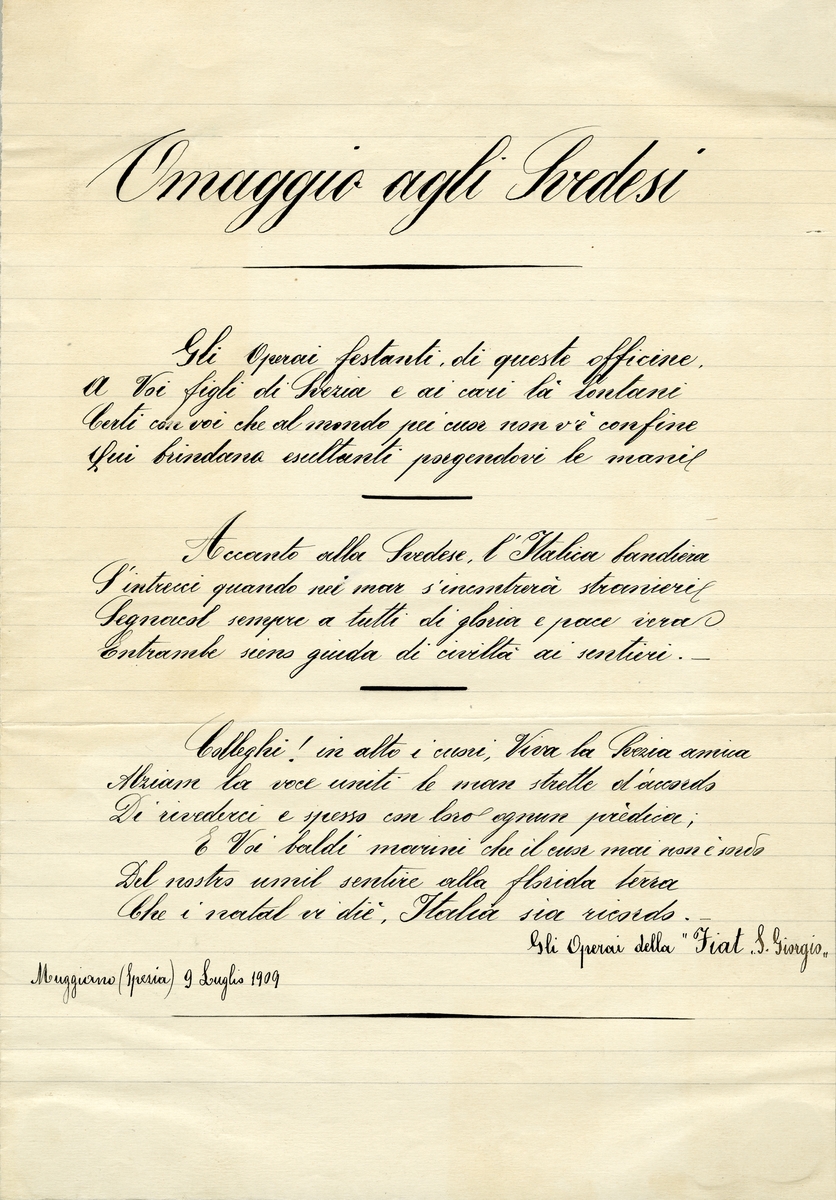 Omaggio agli Svedesi
Gli Operai festanti, di queste officine,
A Voi figli di Svezia e ai cari là lontani
Certi con voi che al mondo pei cuor non v'è confine
Qui brindano esultanti porgendovi le mani
Accanto alla Svedese, l'Italica bandiera
S'intrecci quando nei mar s'incontrerà stranieri
Segnacol sempre a tutti di gloria e pace vera
Entrambe sieno guida di civiltà ai sentieri. —
Colleghi! in alto i cuori, Viva la Svezia amica
Alziam la voce uniti le man strette d'accordo
Di rivederci e spesso con loro ognun prèdica;
E Voi baldi marini che il cuor mai non è sordo
Del nostro umil sentire alla florida terra
Che i natal vi diè, Italia sia ricordo. —
Gli Operai della "Fiat „S. Giorgio„
Muggiano (Spezia) 9 Luglio 1909